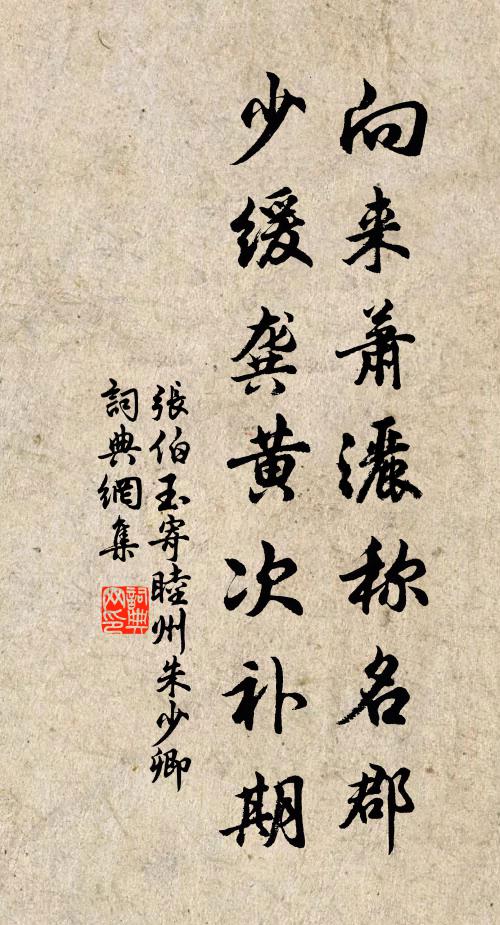 向来萧灑称名郡
少缓龚黄次补期
張伯玉寄睦州朱少卿
詞典網集
詞典网印